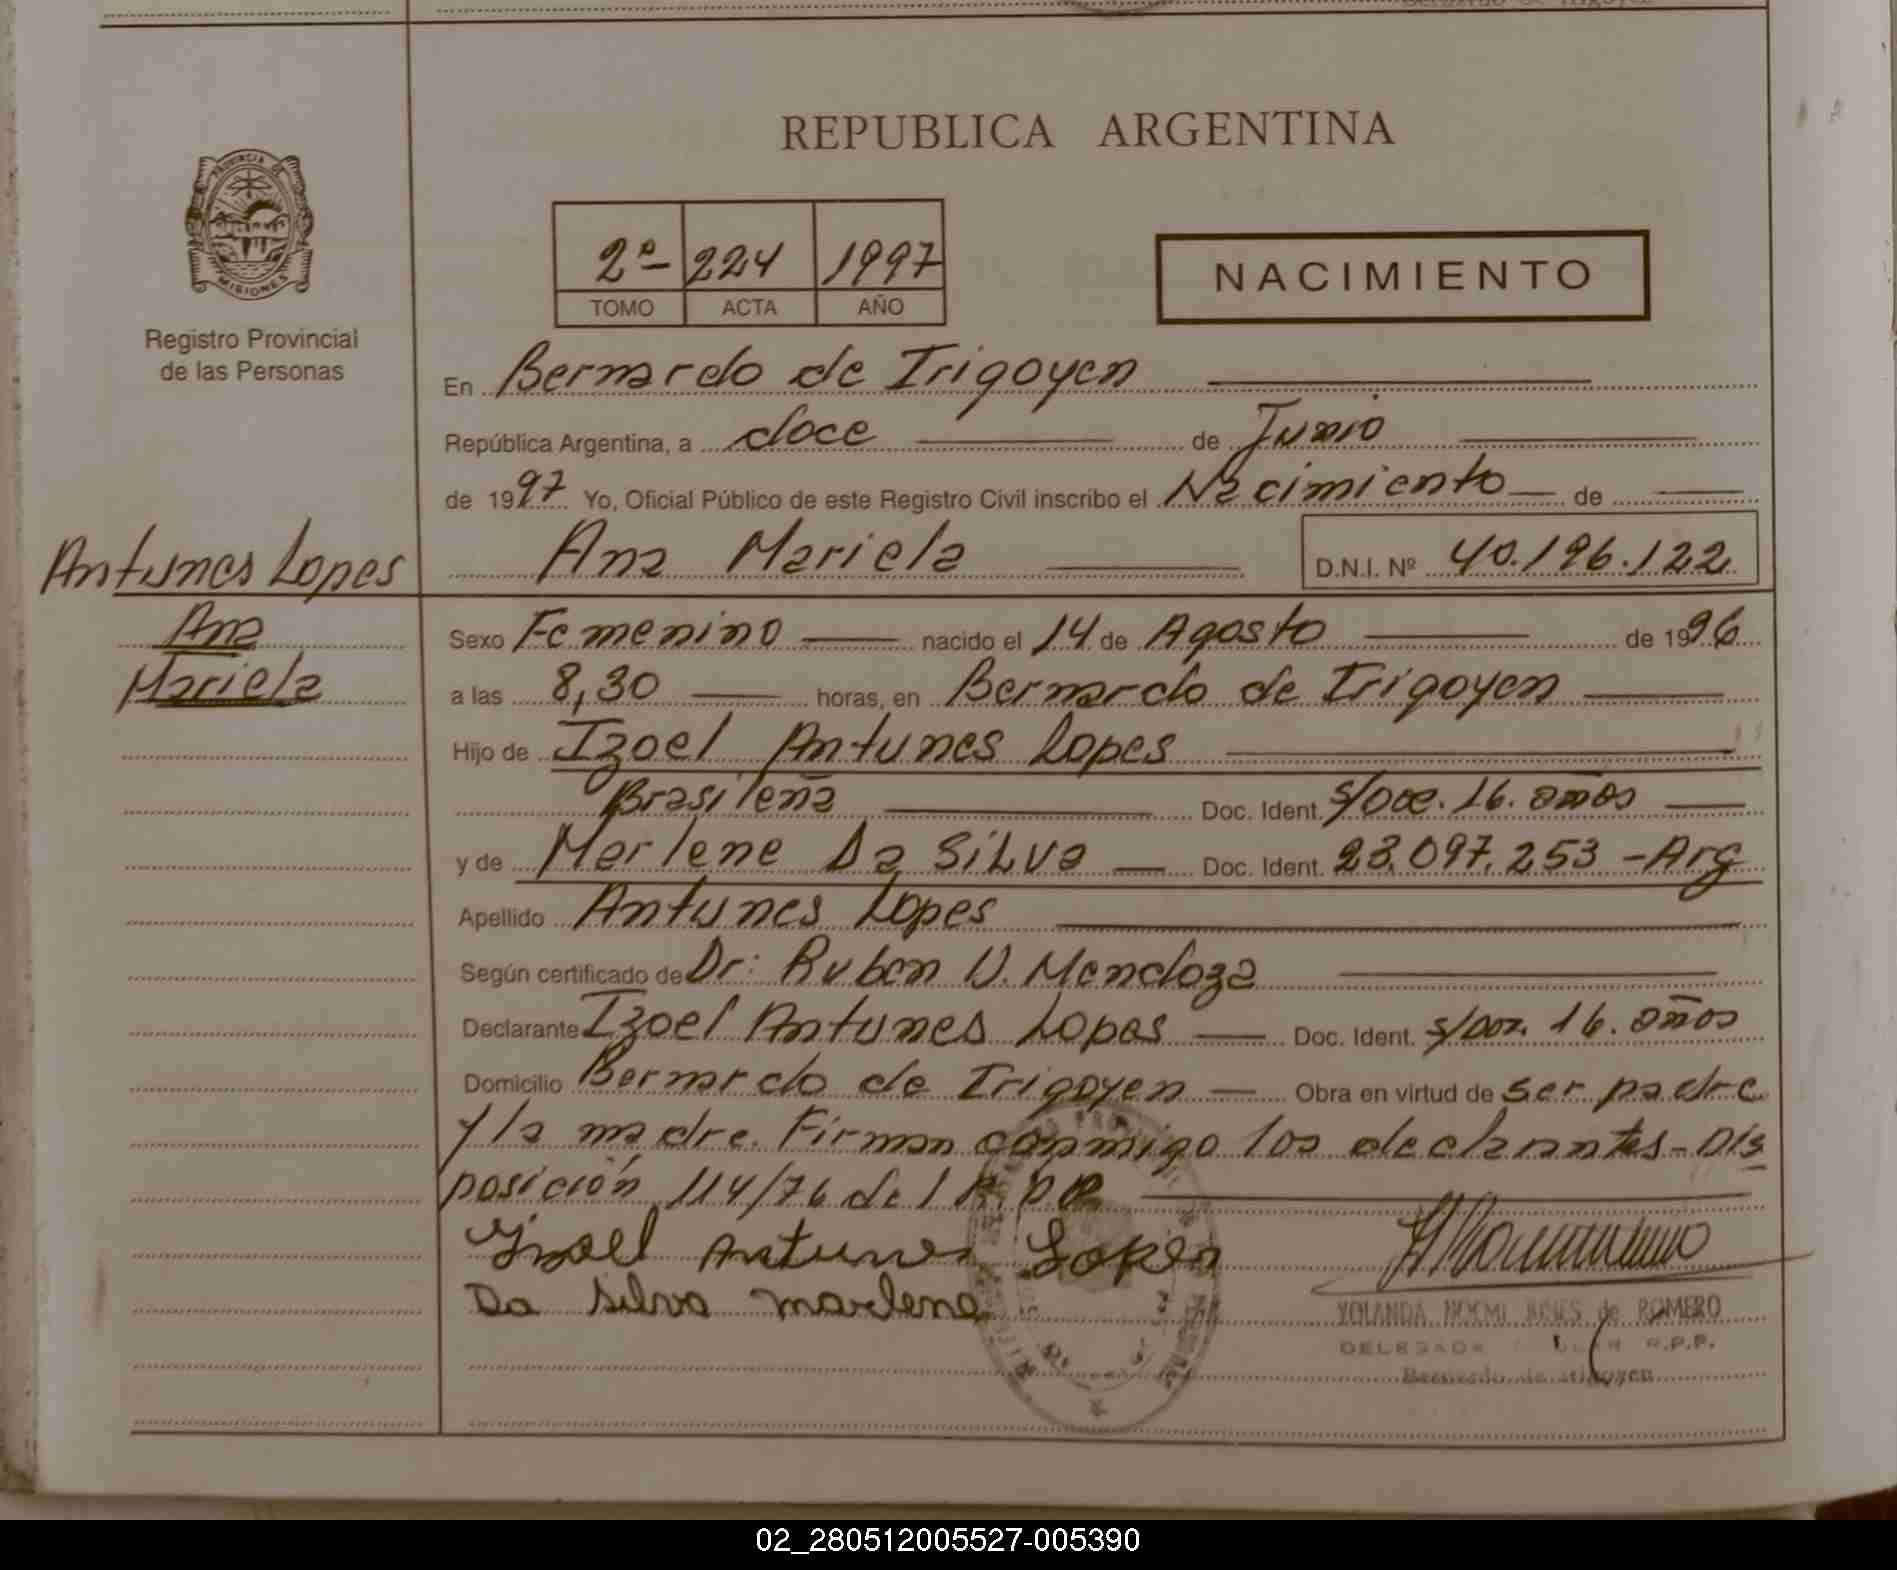 REPUBLICA ARGENTINA
PROVINCIA DE MISIONES
Registro Provincial
de las Personas
2º- 224 1997
TOMO ACTA AÑO
NACIMIENTO
En Bernardo de Irigoyen
República Argentina, a doce de Junio
de 1997 Yo, Oficial Público de este Registro Civil inscribo el Nacimiento de
Antunes Lopes
Ana
Mariela
Ana Mariela D.N.I. Nº 40.196.122
Sexo Femenino nacido el 14 de Agosto de 1996
a las 8,30 horas, en Bernardo de Irigoyen
Hijo de Izoel Antunes Lopes
Brasileña Doc. Ident. s/Doc. 16. años
y de Marlene Da SiLva Doc. Ident. 23.097.253 -Arg
Apellido Antunes Lopes
Según certificado de Dr: Ruben V. Mendoza
Declarante Izoel Antunes Lopes Doc. Ident. s/Doc. 16. años
Domicilio Bernardo de Irigoyen Obra en virtud de ser padre
y la madre. Firman conmigo los declarantes - Dis
posición 114/76 del R.P.P.
Izoel Antunes Lopes
Da Silva Marlene
YOLANDA de ROMERO
DELEGADA R.P.P.
Bernardo de Irigoyen
02_280512005527-005390